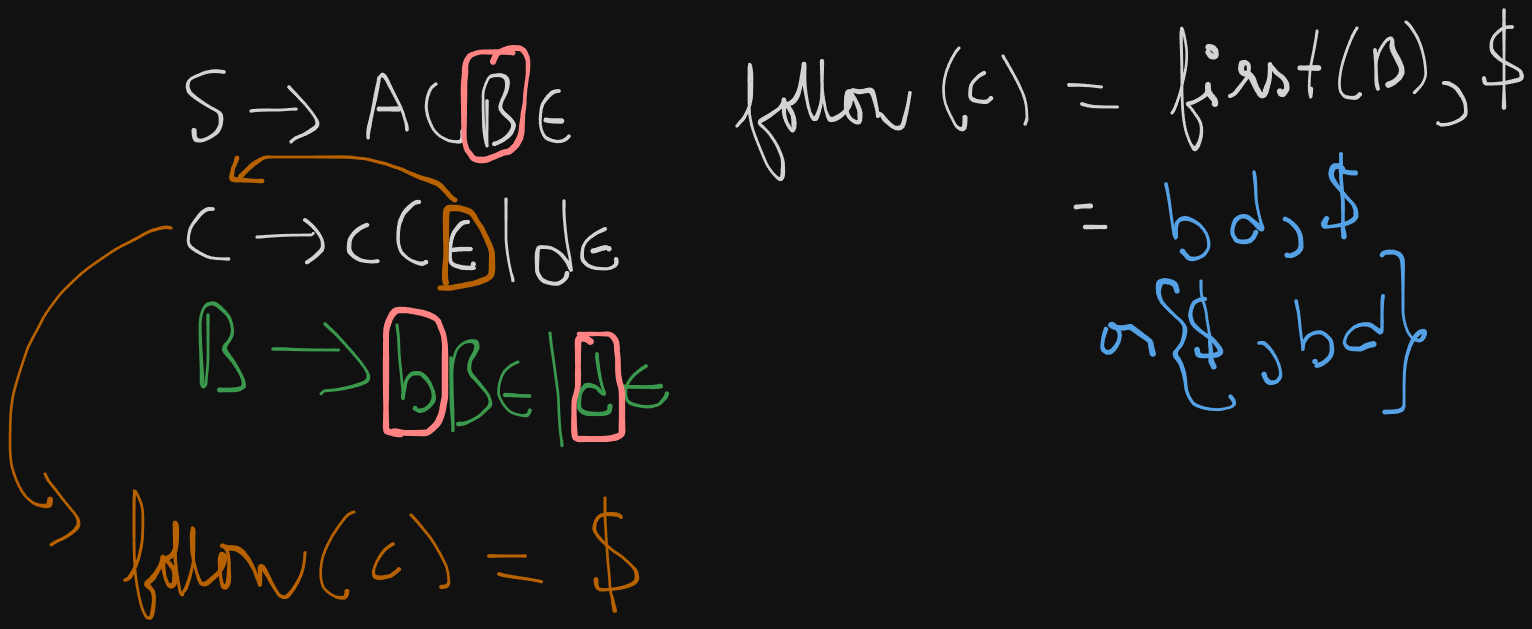 S → ACBϵ
C → cCϵ|dϵ
B → bBϵ|dϵ
follow(c) = $
follow(c) = first(B), $
= bd, $
or {$, bd}